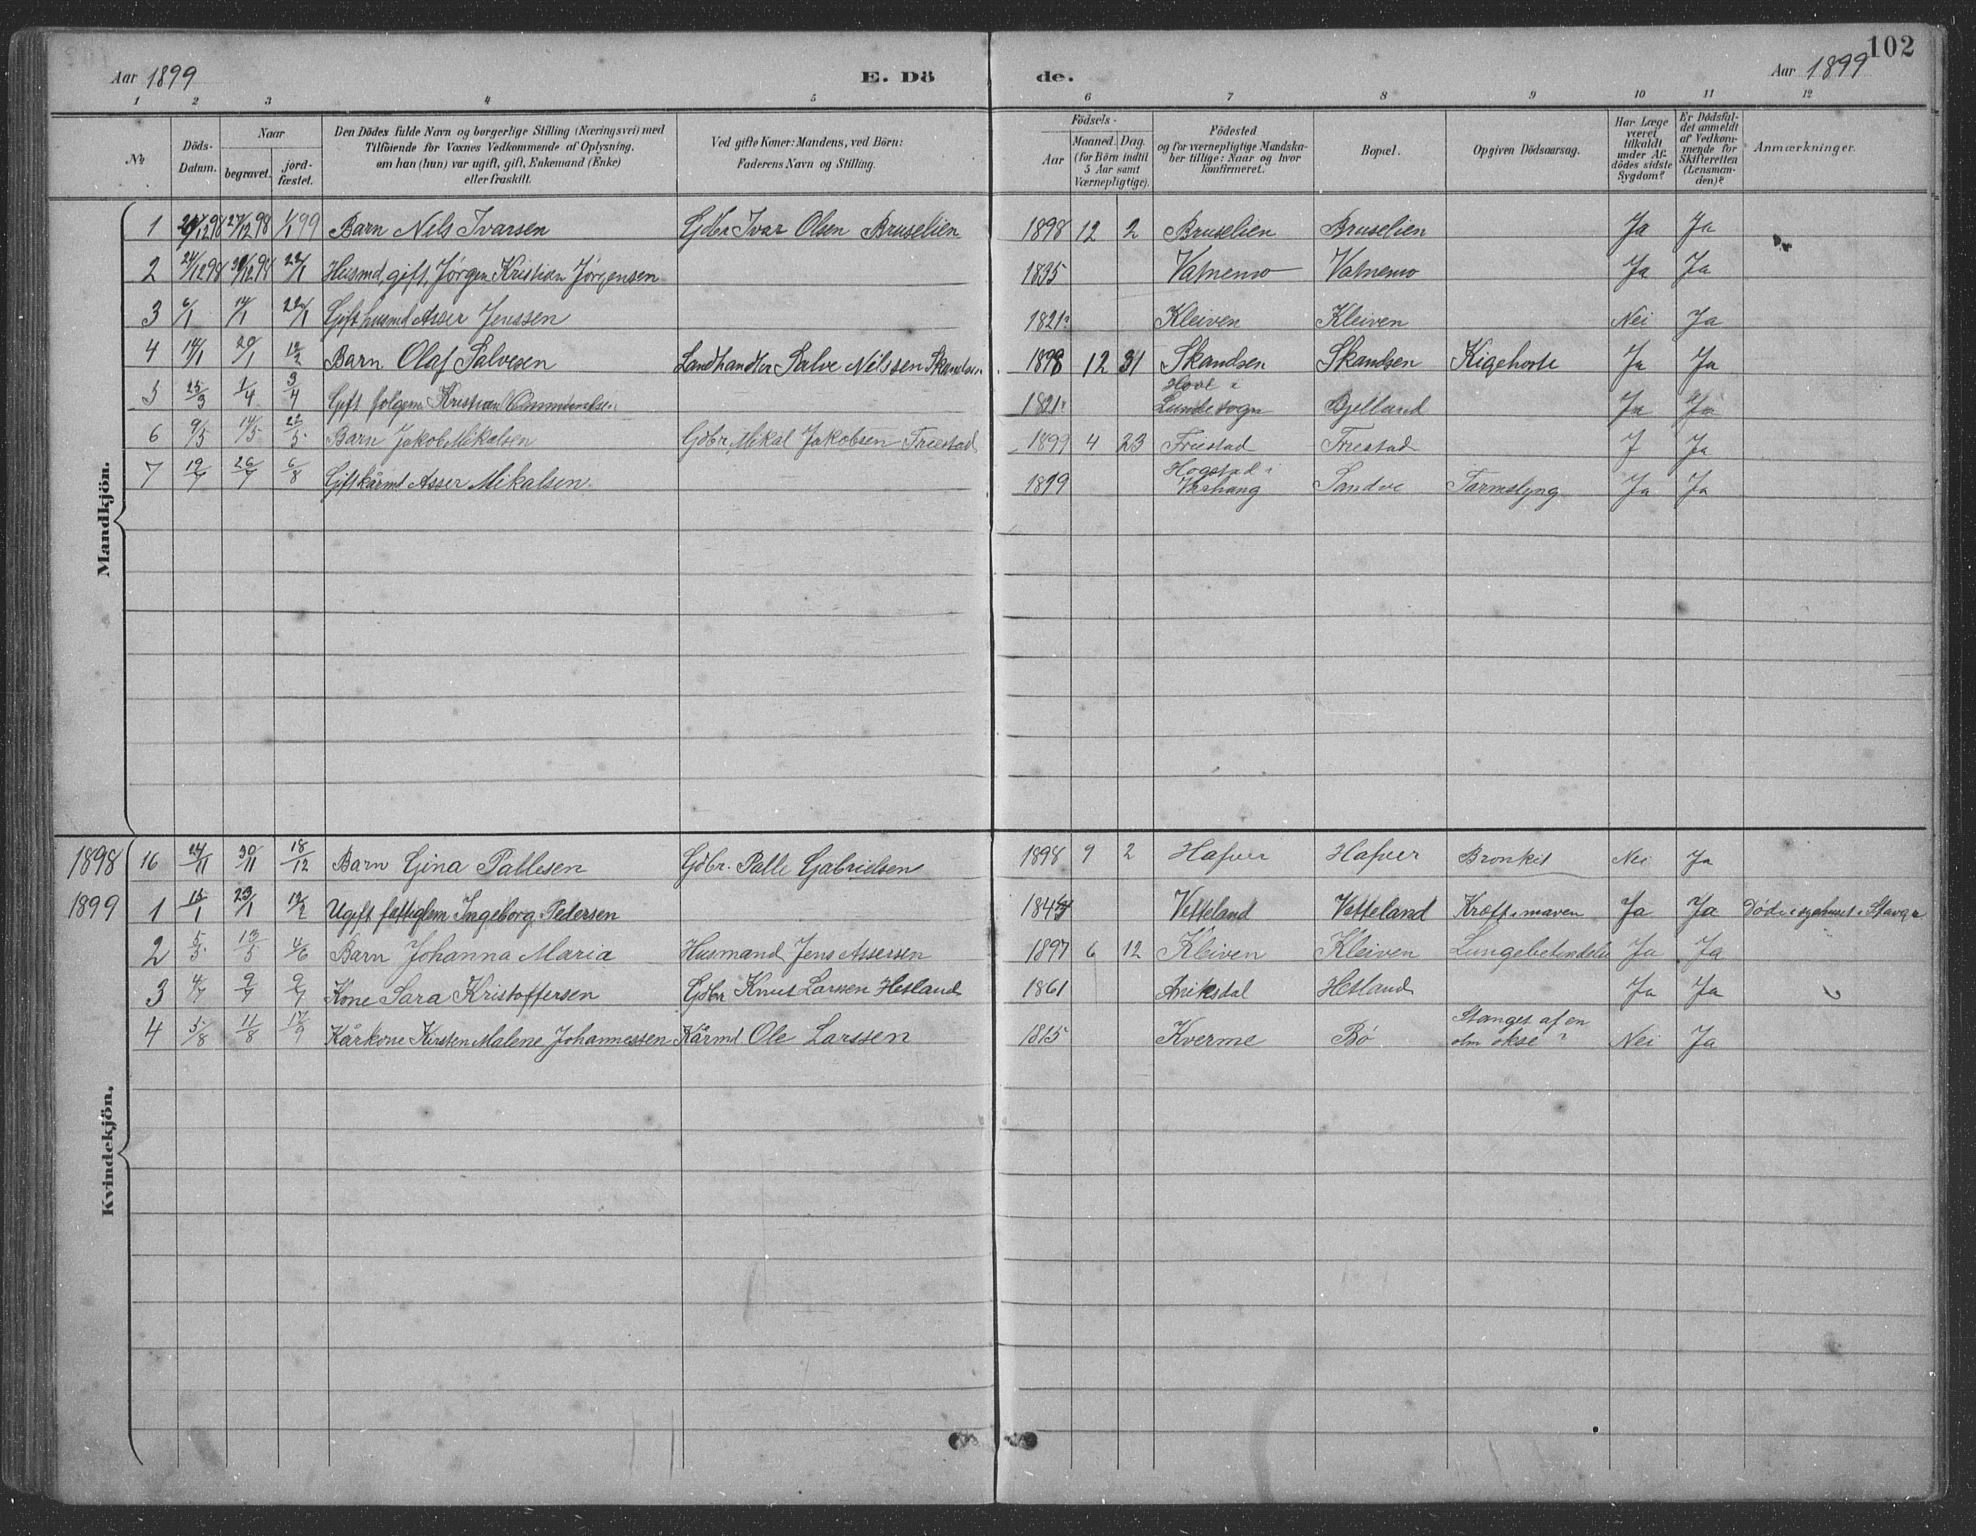 102
Aar 1899 E. Dö de. Aar 1899
1 2 3 4 5 6 7 8 9 10 11 12
No
Döds-Datum.
Naar
begravet.
jord-fæstet.
Den Dödes fulde Navn og borgerlige Stilling (Næringsvei) med
Tilföiende for Voxnes Vedkommende af Oplysning,
om han (hun) var ugift, gift, Enkemand (Enke)
eller fraskilt.
Ved gifte Koner: Mandens, ved Börn:
Faderens Navn og Stilling.
Födsels-
Aar
Maaned. Dag.
(for Börn indtil
5 Aar samt
Værnepligtige).
Födested
og for værnepligtige Mandska-
ber tillige: Naar og hvor
konfirmeret.
Bopæl.
Opgiven Dödsaarsag.
Har Læge
været
tilkaldt
under Af-
dödes sidste
Sygdom?
Er Dödsfal-
det anmeldt
af Vedkom-
mende for
Skifteretten
(Lensman-
den)?
Anmærkninger.
Mandkjön.
1 27/12 98 1/1 99 Barn Nels Ivarsen Gdbr Ivar Olsen Bruselien 1898 12 2 Bruselien Bruselien Ja Ja
2 24/12 98 30/12 98 22/1 Husmd, gift, Jørgen Kristian Jørgensen 1835 Vatnemo Vatnemo Ja Ja
3 6/1 14/1 22/1 Gift husmd Asser Jenssen 1821? Kleiven Kleiven Nei Ja
4 14/1 20/1 12/2 Barn Olaf Salvesen Landhandler Salve Nilssen Skandsen 1898 12 31 Skandsen Skandsen Kighoste Ja Ja
5 25/3 1/4 3/4 Gift folgem Kristian Ommundsen 1821? Hove i Lunde sogn Bjelland Ja Ja
6 9/5 14/5 22/5 Barn Jakob Mikalsen Gdbr, Mikal Jakobsen Friestad 1899 4 23 Friestad Friestad J Ja
7 19/7 26/7 6/8 Gift kårmd Asser Mikalsen 1819 Hogstad i Varhaug Sandve Tarmslyng Ja Ja
Kvindekjön.
1898 16 24/11 30/11 18/12 Barn Gina Pallesen Gdbr. Palle Gabrielsen 1898 9 2 Hafuer Hafuer Bronkit Nei Ja
1899 1 15/1 23/1 12/2 Ugift fattiglem Ingeborg Pedersen 1844 Vetteland Vetteland Kræft i maven Ja Ja Död i sygehuset i Stavgr
2 5/5 13/5 4/6 Barn Johanna Maria Husmand Jens Assersen 1897 6 12 Kleiven Kleiven Lungebetendelse Ja Ja
3 4/7 9/7 9/7 Kone Sara Kristoffersen Gdbr Knut Larssen Hetland 1861 Aniksdal Hetland Ja Ja
4 5/8 11/8 17/9 Kårkone Kirsten Malene Johannessen Kårmd Ole Larssen 1815 Kverme Bø Stanget af en olm okse? Nei Ja